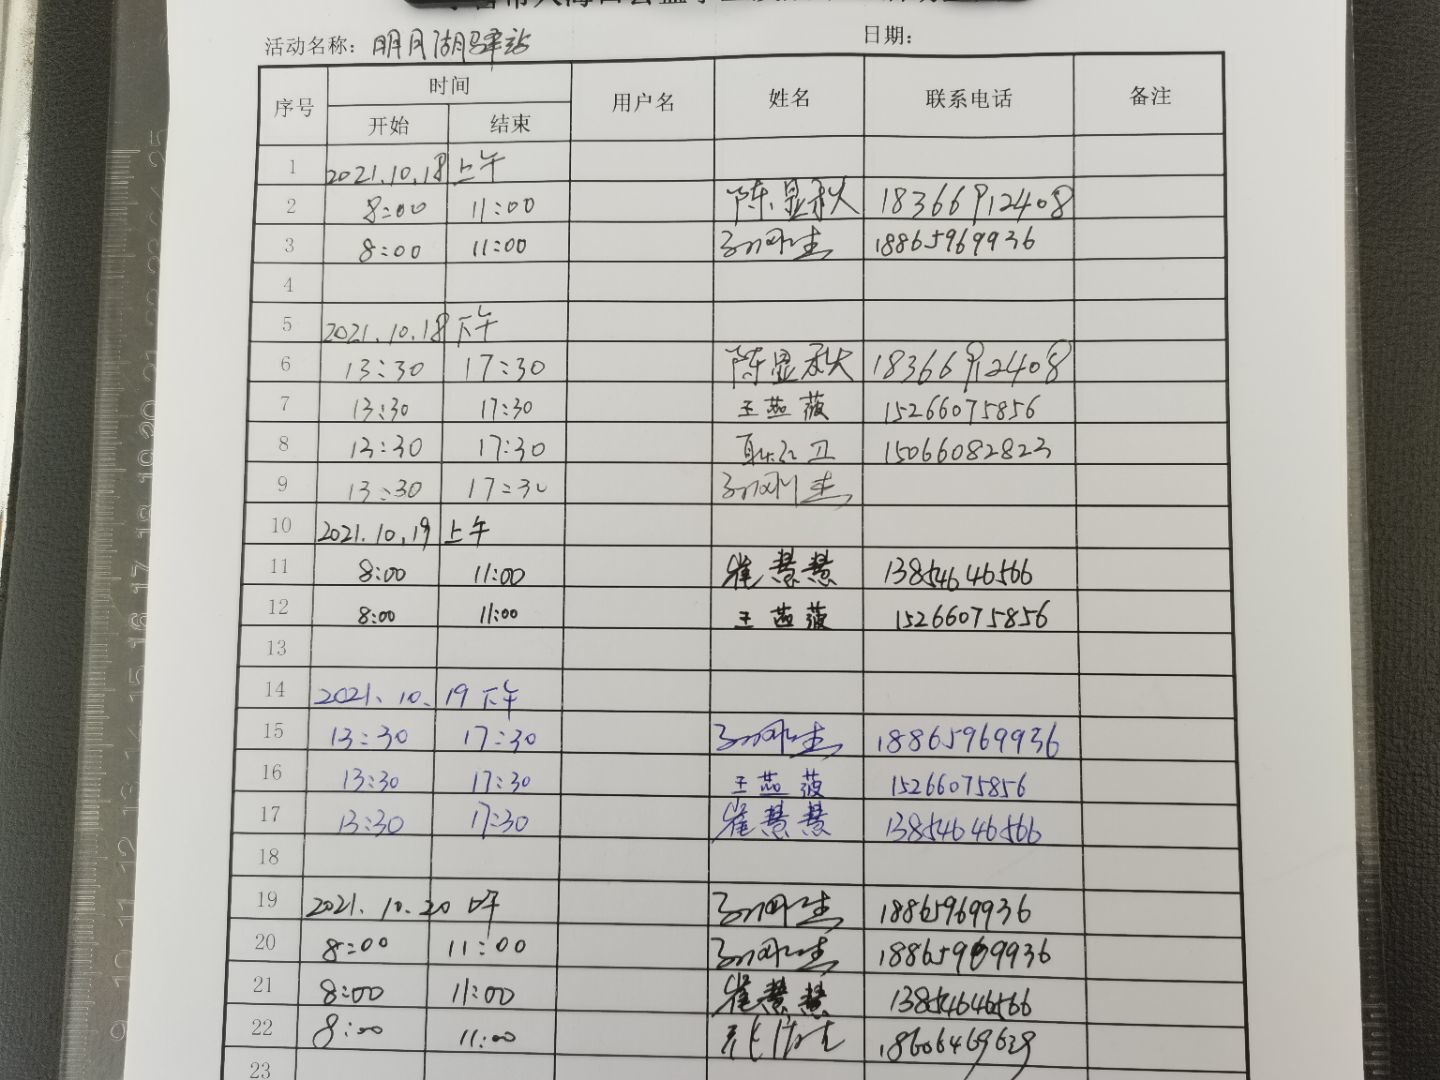 活动名称：明月湖驿站 日期：
序号 时间 用户名 姓名 联系电话 备注
开始 结束
1 2021.10.18 上午
2 8:00 11:00 陈显秋 18366912408
3 8:00 11:00 18865969936
4
5 2021.10.18 下午
6 13:30 17:30 陈显秋 18366912408
7 13:30 17:30 王燕薇 15266075856
8 13:30 17:30 耿红卫 15066082823
9 13:30 17:30
10 2021.10.19 上午
11 8:00 11:00 崔慧慧 13854646566
12 8:00 11:00 王燕薇 15266075856
13
14 2021.10.19 下午
15 13:30 17:30 18865969936
16 13:30 17:30 王燕薇 15266075856
17 13:30 17:30 崔慧慧 13854646566
18
19 2021.10.20 18865969936
20 8:00 11:00 18865969936
21 8:00 11:00 崔慧慧 13854646566
22 8:00 11:00 18606469629
23